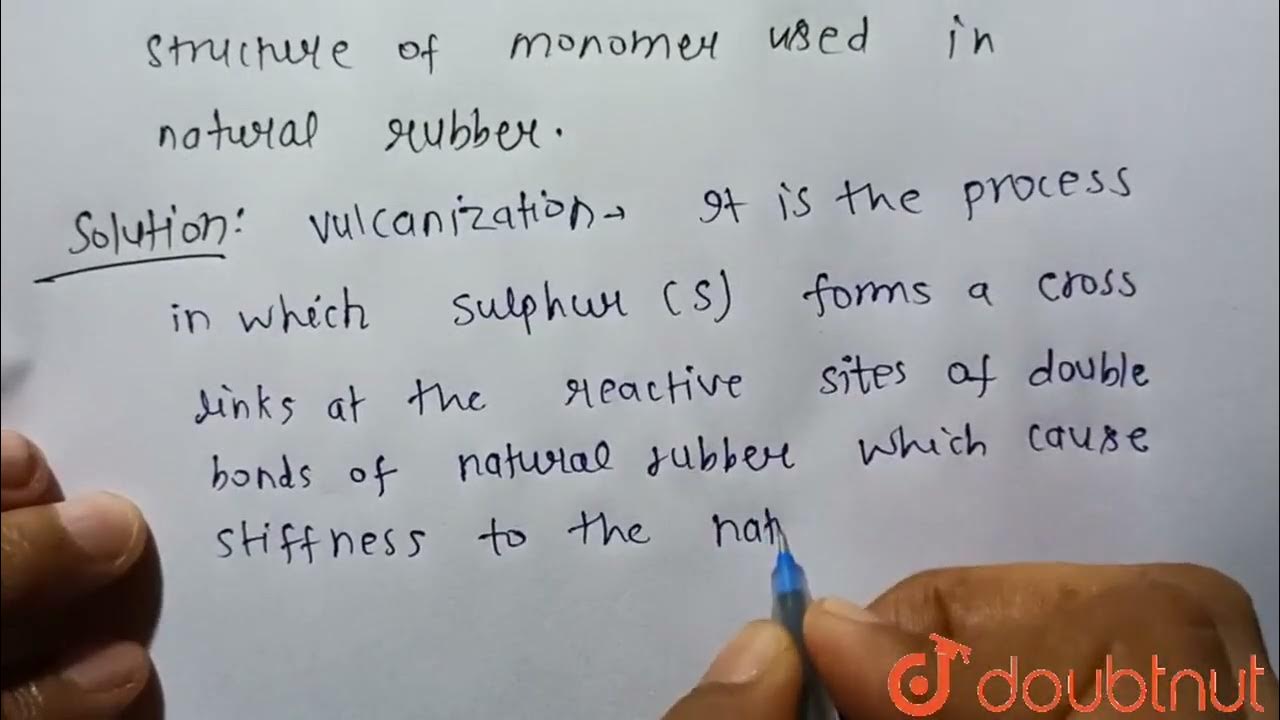 structure of monomer used in
natural rubber.
Solution: vulcanization→ It is the process
in which sulphur (S) forms a cross
links at the reactive sites of double
bonds of natural rubber which cause
stiffness to the nat
doubtnut